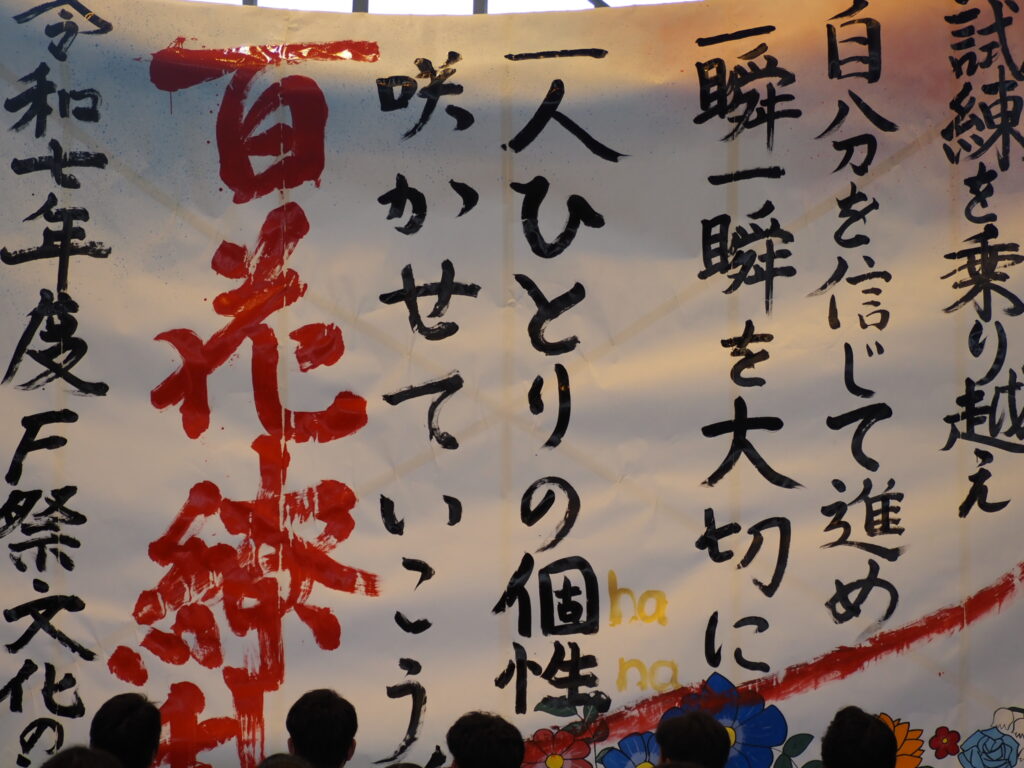 試練を乗り越え
自分を信じて進め
一瞬一瞬を大切に
一人ひとりの個性
ha
na
咲かせていこう
百花繚
令和七年度F祭文化の